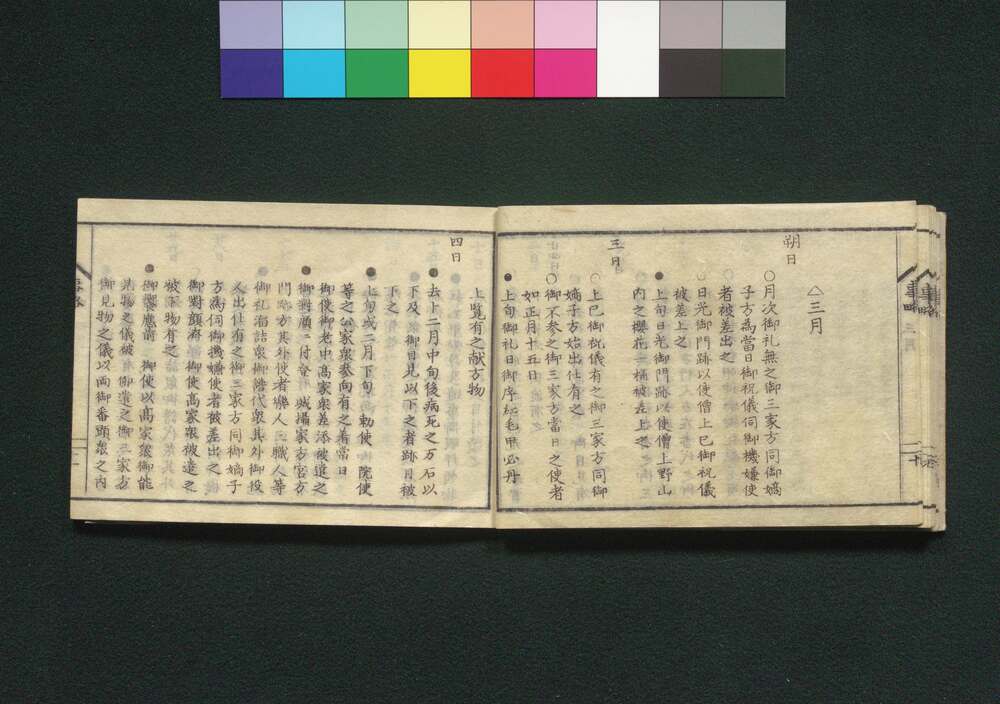 △三月
朔日
○月次御礼無之御三家方同御嫡
子方為當日御祝儀伺御機嫌使
者被差出之
○日光御門跡以使僧上巳御祝儀
被差上之
●上旬日光御門跡以使僧上野山
内之櫻花一桶被差上之
三日
○上巳御祝儀有之御三家方同御
嫡子方始出仕有之
○御不参之御三家方當日之使者
如正月十五日
●上旬御礼日御序
上覧有之献方物
四日
●去十二月中旬後病死之万石以
下及御目見以下之者跡月被
下之
●上旬或二月下旬 勅使 院使
等之公家衆参向有之着當日
御使御老中高家衆差添被遣之
御對顔 登 城攝家方宮方
門跡方其外使者樂人 職人等
御礼溜詰衆御譜代衆其外御役
人出仕有之御三家方同御嫡子
方為伺御機嫌使者被差出之
御對顔済 御使高家衆被遣之
被下物有之
●御饗應前 御使以高家衆御能
見物之儀被 御遣之御三家方
御見物之儀以両御番頭衆之内
三月